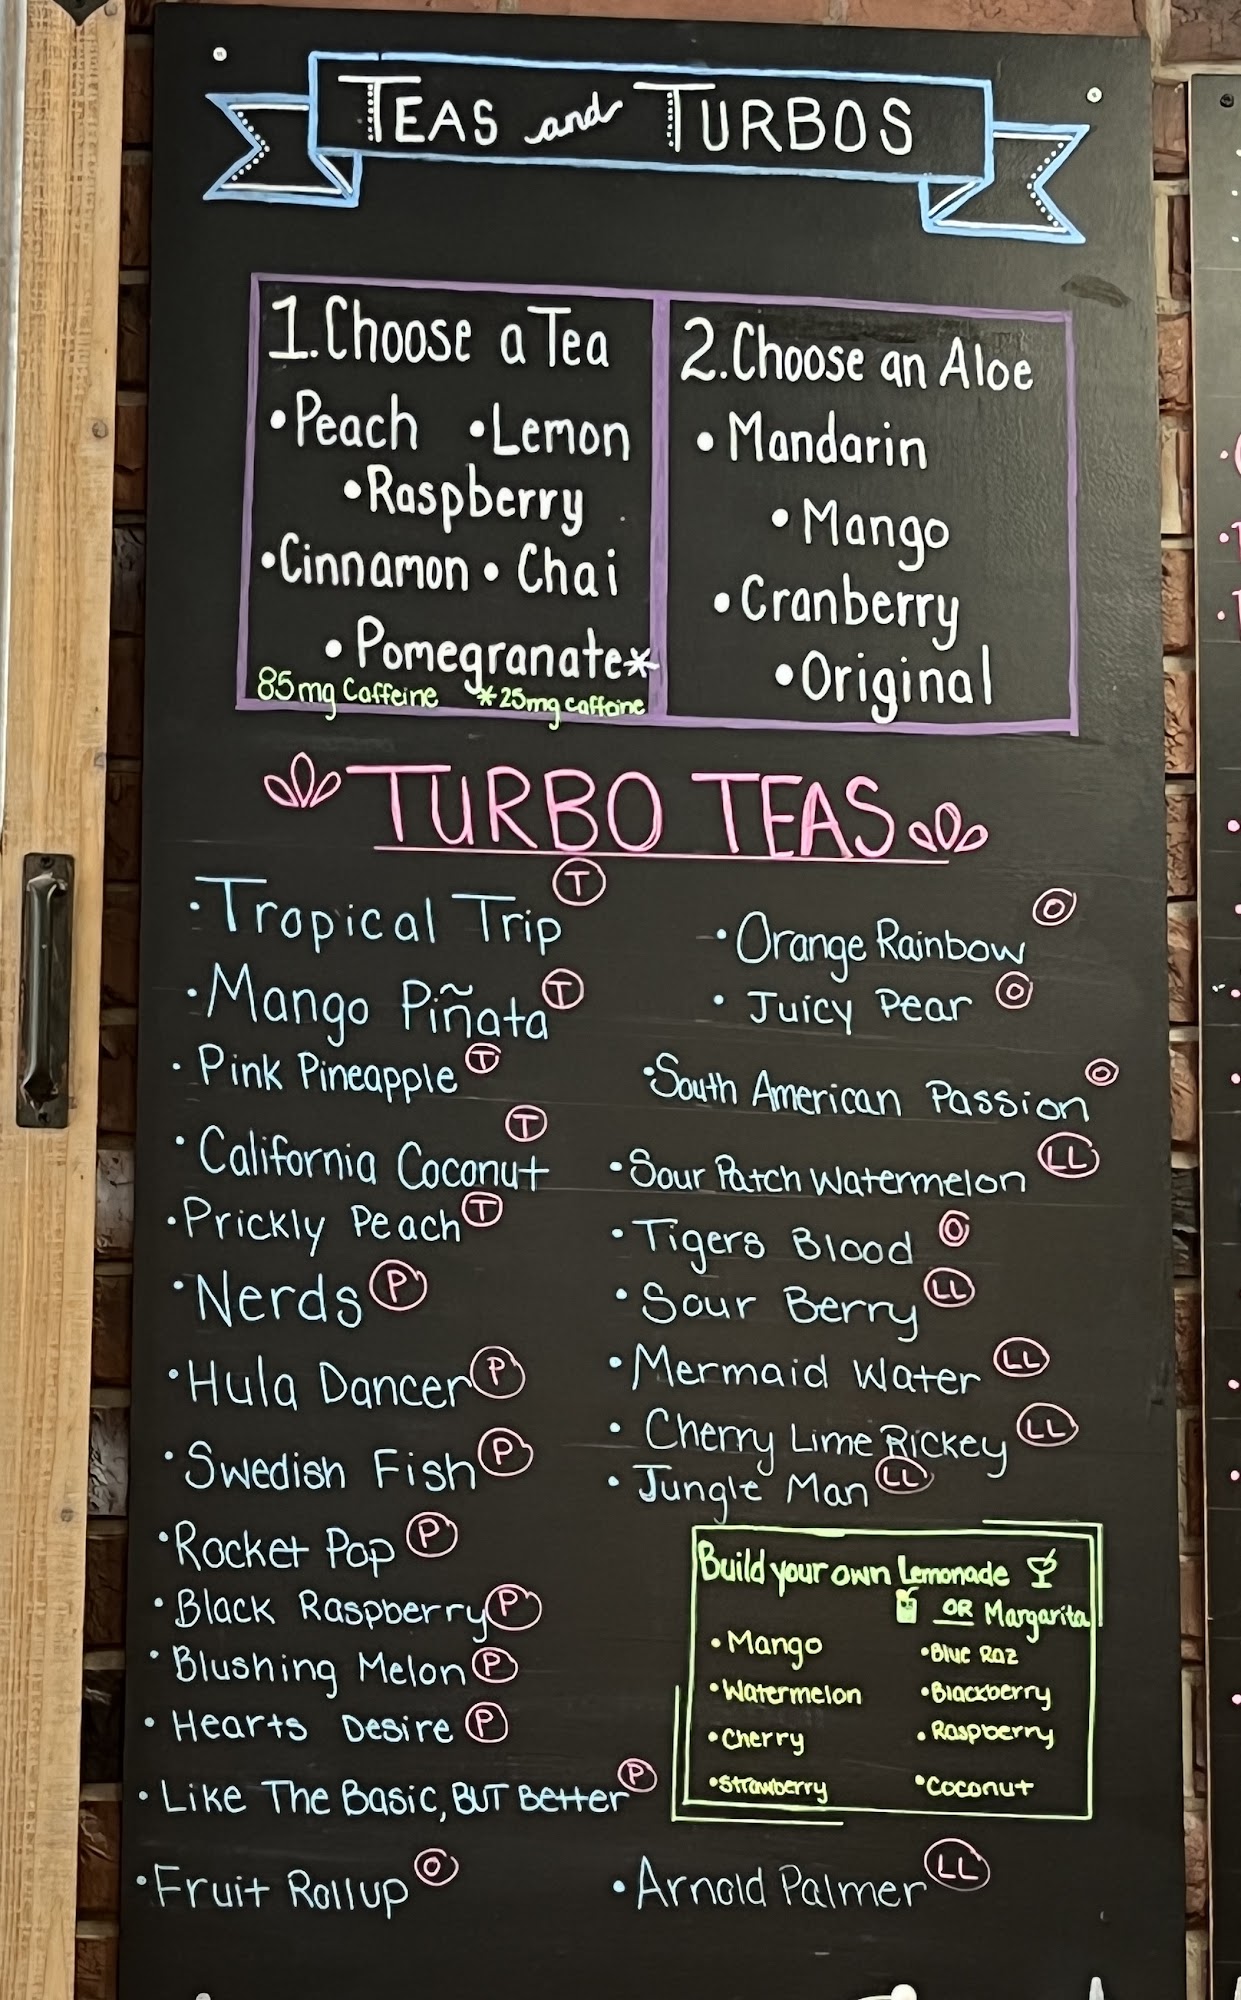 TEAS and TURBOS
1. Choose a Tea
• Peach • Lemon
• Raspberry
• Cinnamon • Chai
• Pomegranate*
85mg Caffeine *25mg caffeine
2. Choose an Aloe
• Mandarin
• Mango
• Cranberry
• Original
TURBO TEAS
• Tropical Trip T
• Mango Piñata T
• Pink Pineapple T
• California Coconut T
• Prickly Peach T
• Nerds P
• Hula Dancer P
• Swedish Fish P
• Rocket Pop P
• Black Raspberry P
• Blushing Melon P
• Hearts Desire P
• Like The Basic, BUT Better P
• Fruit Rollup O
• Orange Rainbow O
• Juicy Pear O
• South American Passion O
• Sour Patch Watermelon LL
• Tigers Blood O
• Sour Berry LL
• Mermaid Water LL
• Cherry Lime Rickey LL
• Jungle Man LL
Build your own Lemonade
OR Margarita
• Mango
• Watermelon
• Cherry
• Strawberry
• Blue Raz
• Blackberry
• Raspberry
• Coconut
• Arnold Palmer LL